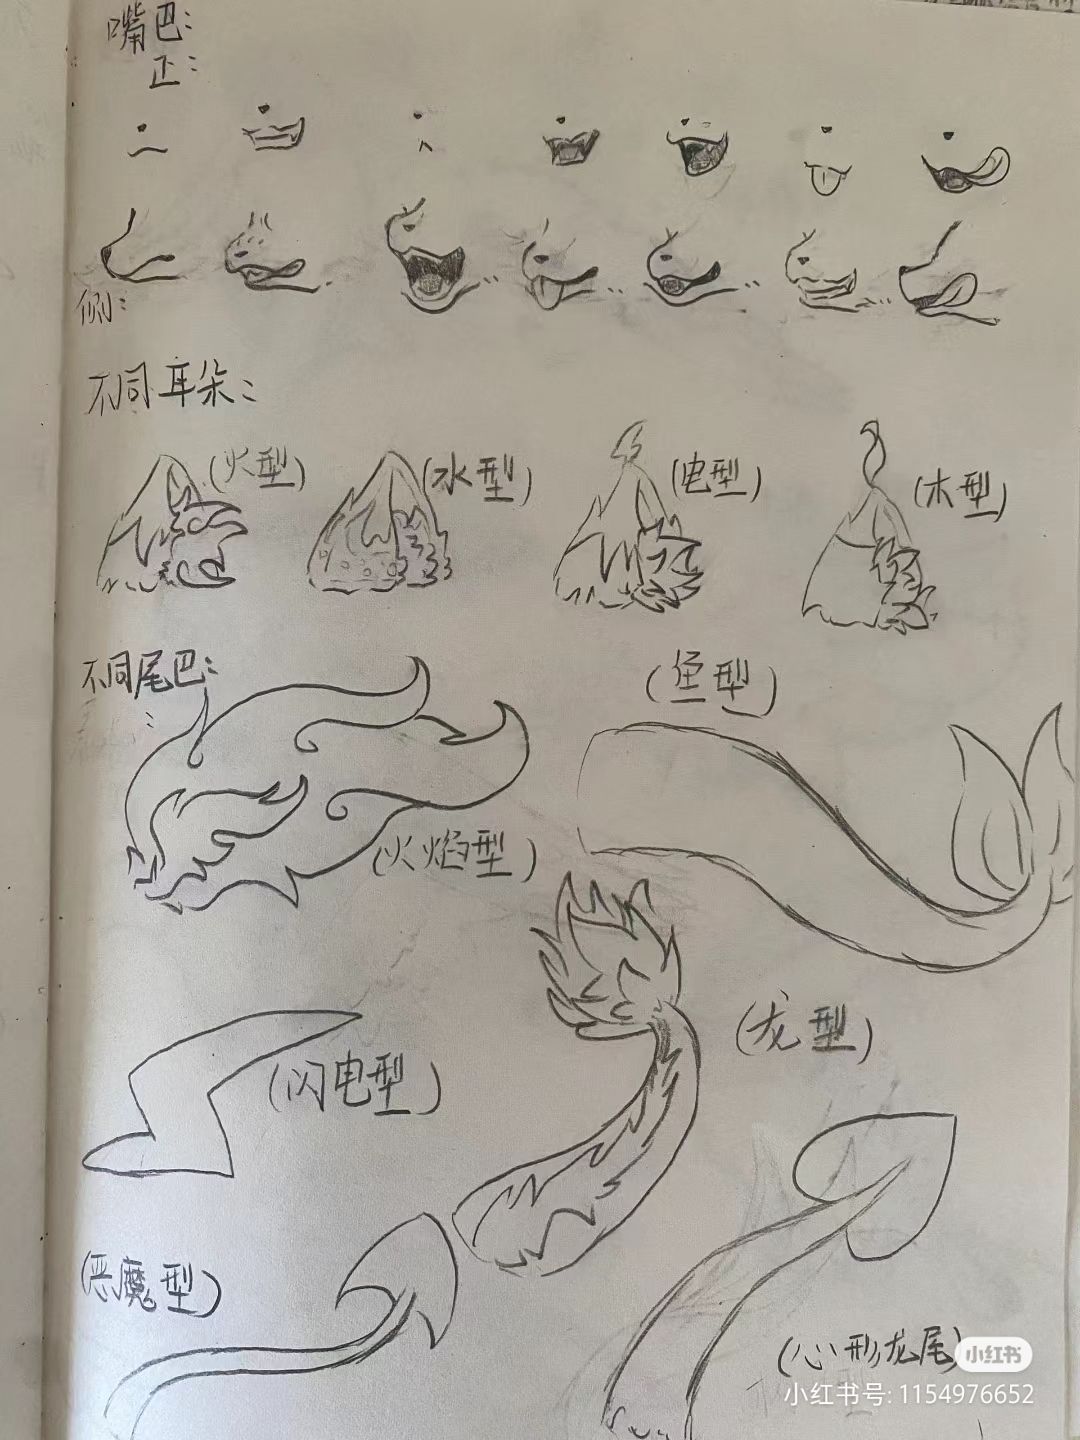 嘴巴:
正:
侧:
不同耳朵:
(火型)
(水型)
(电型)
(木型)
不同尾巴:
(鱼型)
(火焰型)
(龙型)
(闪电型)
(恶魔型)
(心形龙尾)
小红书
小红书号: 1154976652